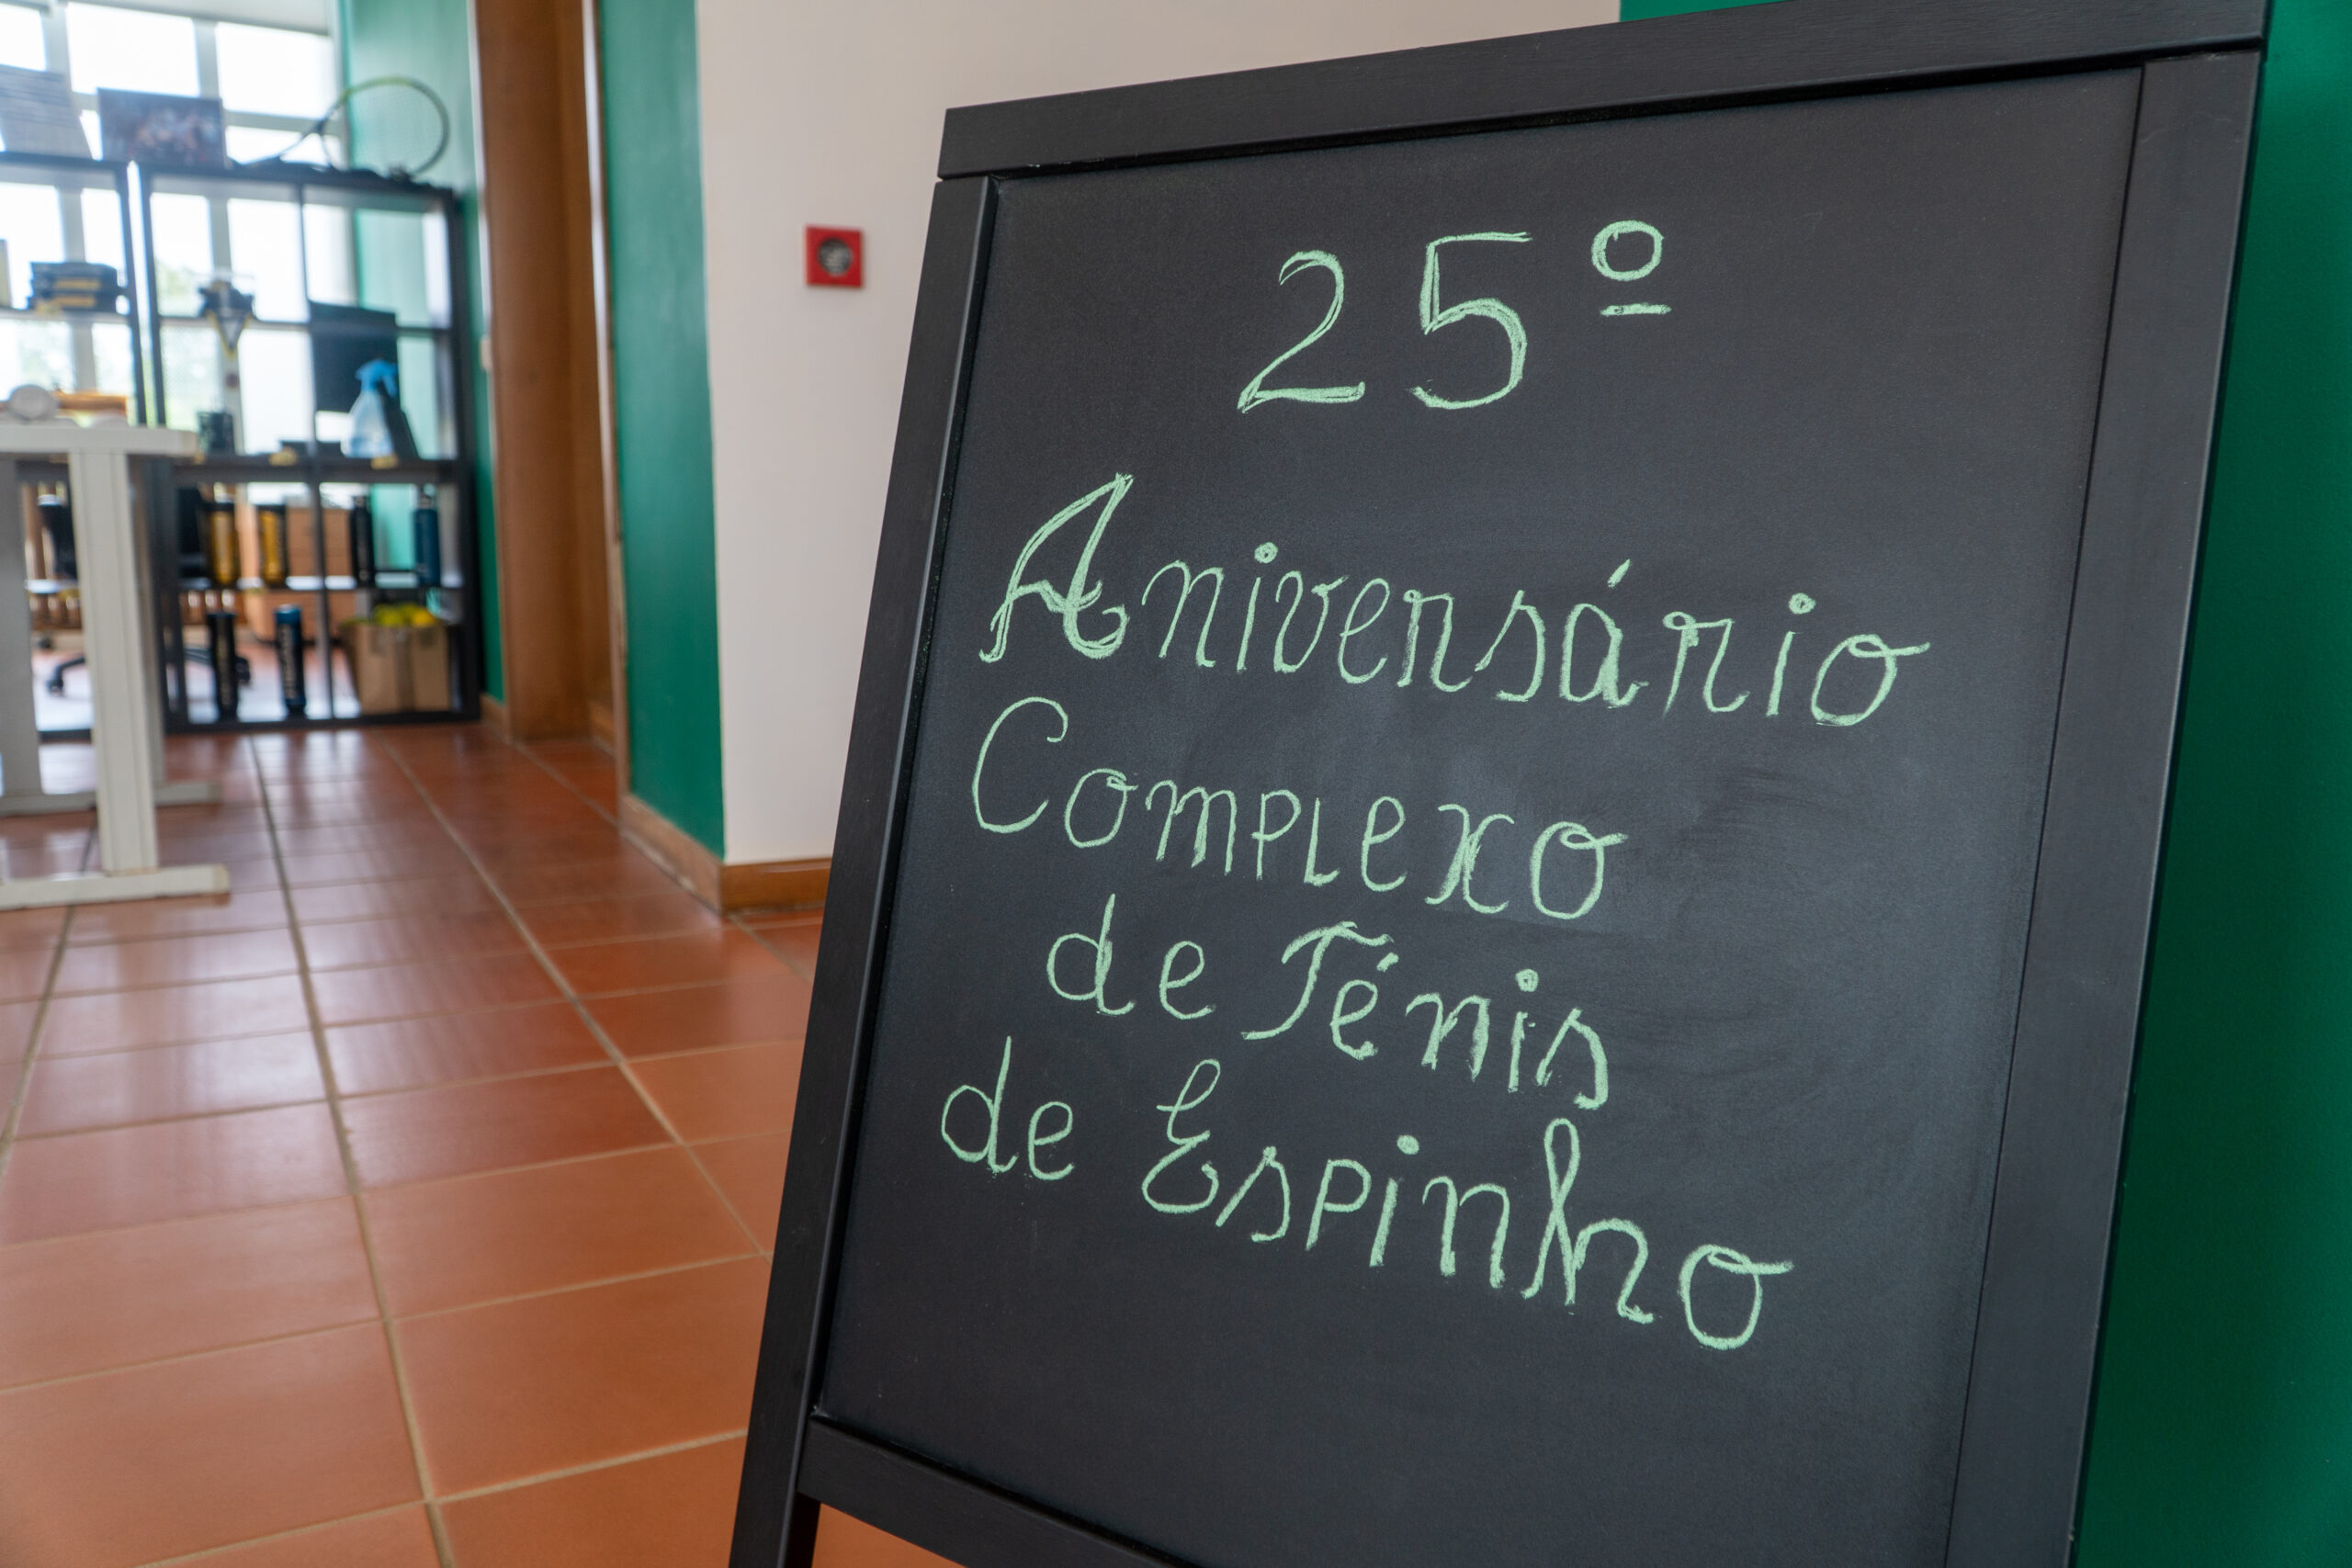 25º
Aniversário
Complexo
de Ténis
de Espinho